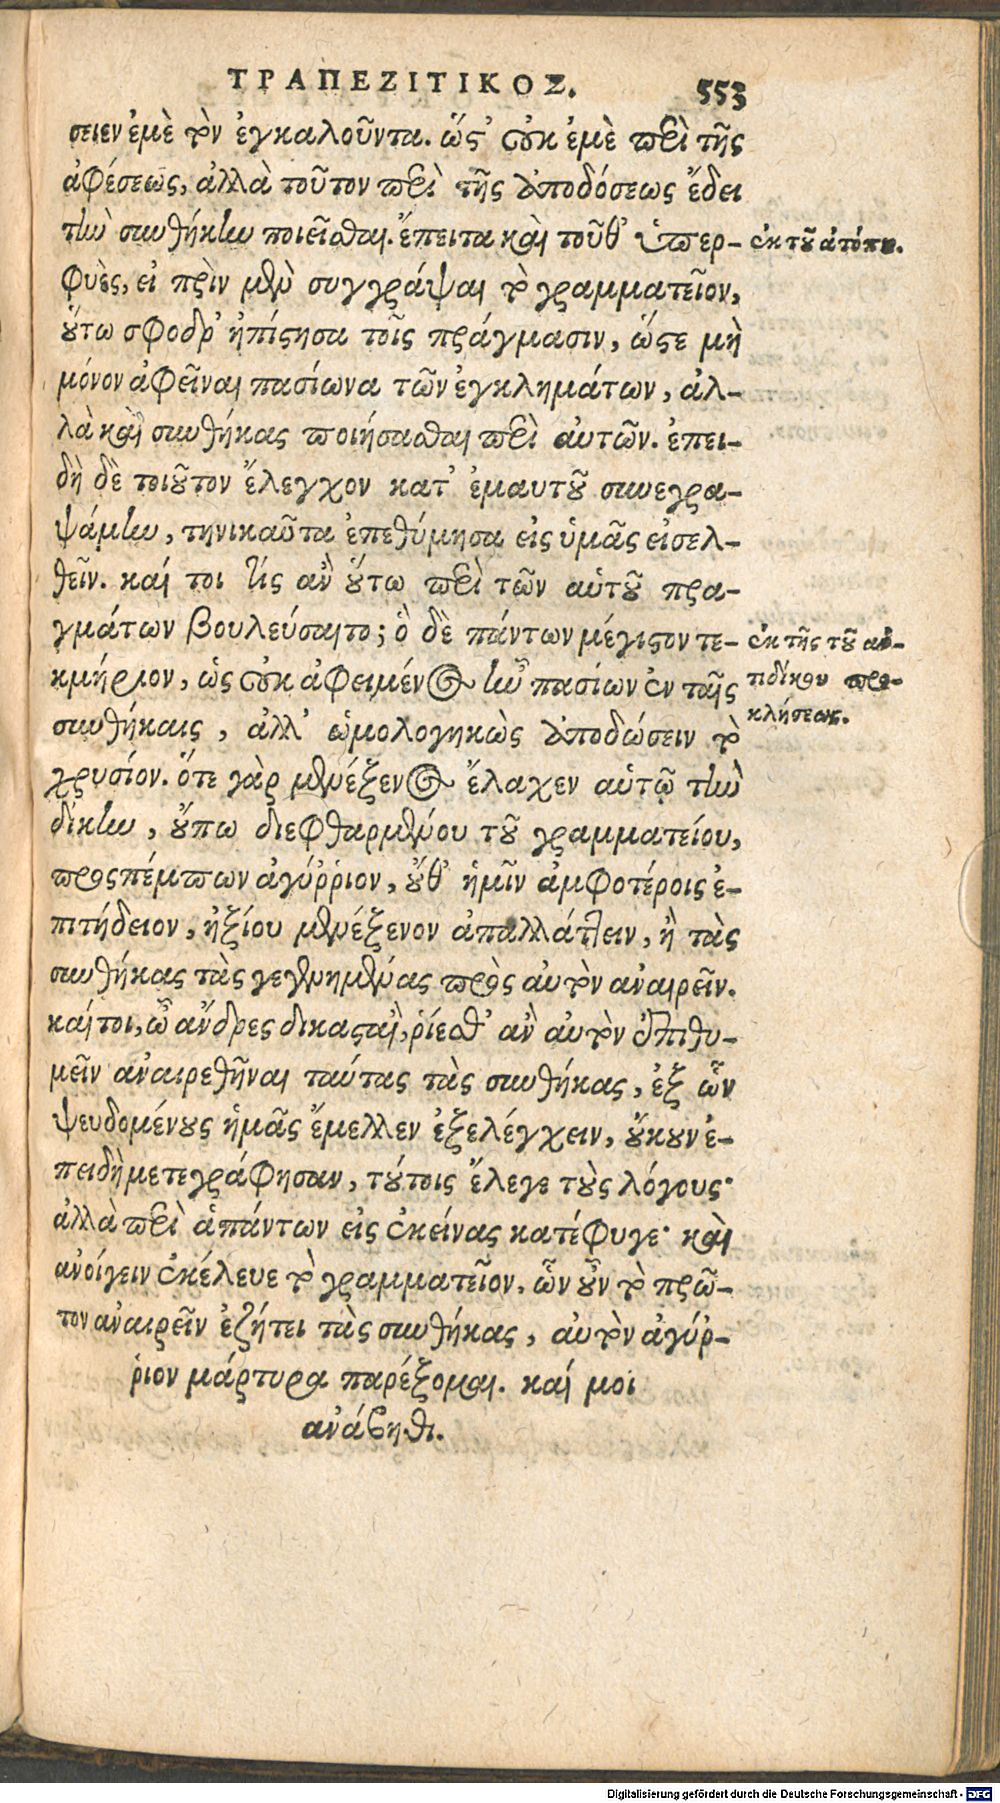 ΤΡΑΠΕΖΙΤΙΚΟΣ. 553
σειεν ἐμὲ τὸν ἐγκαλοῦντα. ὥστ' οὐκ ἐμὲ περὶ τῆς
ἀφέσεως, ἀλλὰ τοῦτον περὶ τῆς ἀποδόσεως ἔδει
τὴν συνθήκην ποιεῖσθαι. ἔπειτα καὶ τοῦθ' ὑπερ-
ἐκ τοῦ ἀτόπου.
φυὲς, εἰ πρὶν μὲν συγγράψαι τὸ γραμματεῖον,
οὕτω σφοδρ' ἠπίστησα τοῖς πράγμασιν, ὥστε μὴ
μόνον ἀφεῖναι πασίωνα τῶν ἐγκλημάτων, ἀλ-
λὰ καὶ συνθήκας ποιήσασθαι περὶ αὐτῶν. ἐπει-
δὴ δὲ τοιοῦτον ἔλεγχον κατ' ἐμαυτοῦ συνεγρα-
ψάμην, τηνικαῦτα ἐπεθύμησα εἰς ὑμᾶς εἰσελ-
θεῖν. καί τοι τίς ἂν οὕτω περὶ τῶν αὑτοῦ πρα-
γμάτων βουλεύσαιτο; ὃ δὲ πάντων μέγιστον τε-
ἐκ τῆς τοῦ ἀν-
τιδίκου προ-
κλήσεως.
κμήριον, ὡς οὐκ ἀφειμένος ἦν πασίων ἐν ταῖς
συνθήκαις, ἀλλ' ὡμολογηκὼς ἀποδώσειν τὸ
χρυσίον. ὅτε γὰρ μενέξενος ἔλαχεν αὑτῷ τὴν
δίκην, οὔπω διεφθαρμένου τοῦ γραμματείου,
προσπέμπων ἀγύῤῥιον, οὔθ' ἡμῖν ἀμφοτέροις ἐ-
πιτήδειον, ἠξίου μενέξενον ἀπαλλάττειν, ἢ τὰς
συνθήκας τὰς γεγενημένας πρὸς αὐτὸν ἀναιρεῖν.
καί τοι, ὦ ἄνδρες δικασταὶ, οἴεσθ' ἂν αὐτὸν ἐπιθυ-
μεῖν ἀναιρεθῆναι ταύτας τὰς συνθήκας, ἐξ ὧν
ψευδομένους ἡμᾶς ἔμελλεν ἐξελέγχειν, οὔκουν ἐ-
πειδὴ μετεγράφησαν, τούτοις ἔλεγε τοὺς λόγους·
ἀλλὰ περὶ ἁπάντων εἰς ἐκείνας κατέφυγε· καὶ
ἀνοίγειν ἐκέλευε τὸ γραμματεῖον. ὧν οὖν τὸ πρῶ-
τον ἀναιρεῖν ἐζήτει τὰς συνθήκας, αὐτὸν ἀγύῤ-
ῥιον μάρτυρα παρέξομαι. καί μοι
ἀνάβηθι.
Digitalisierung gefördert durch die Deutsche Forschungsgemeinschaft - DFG